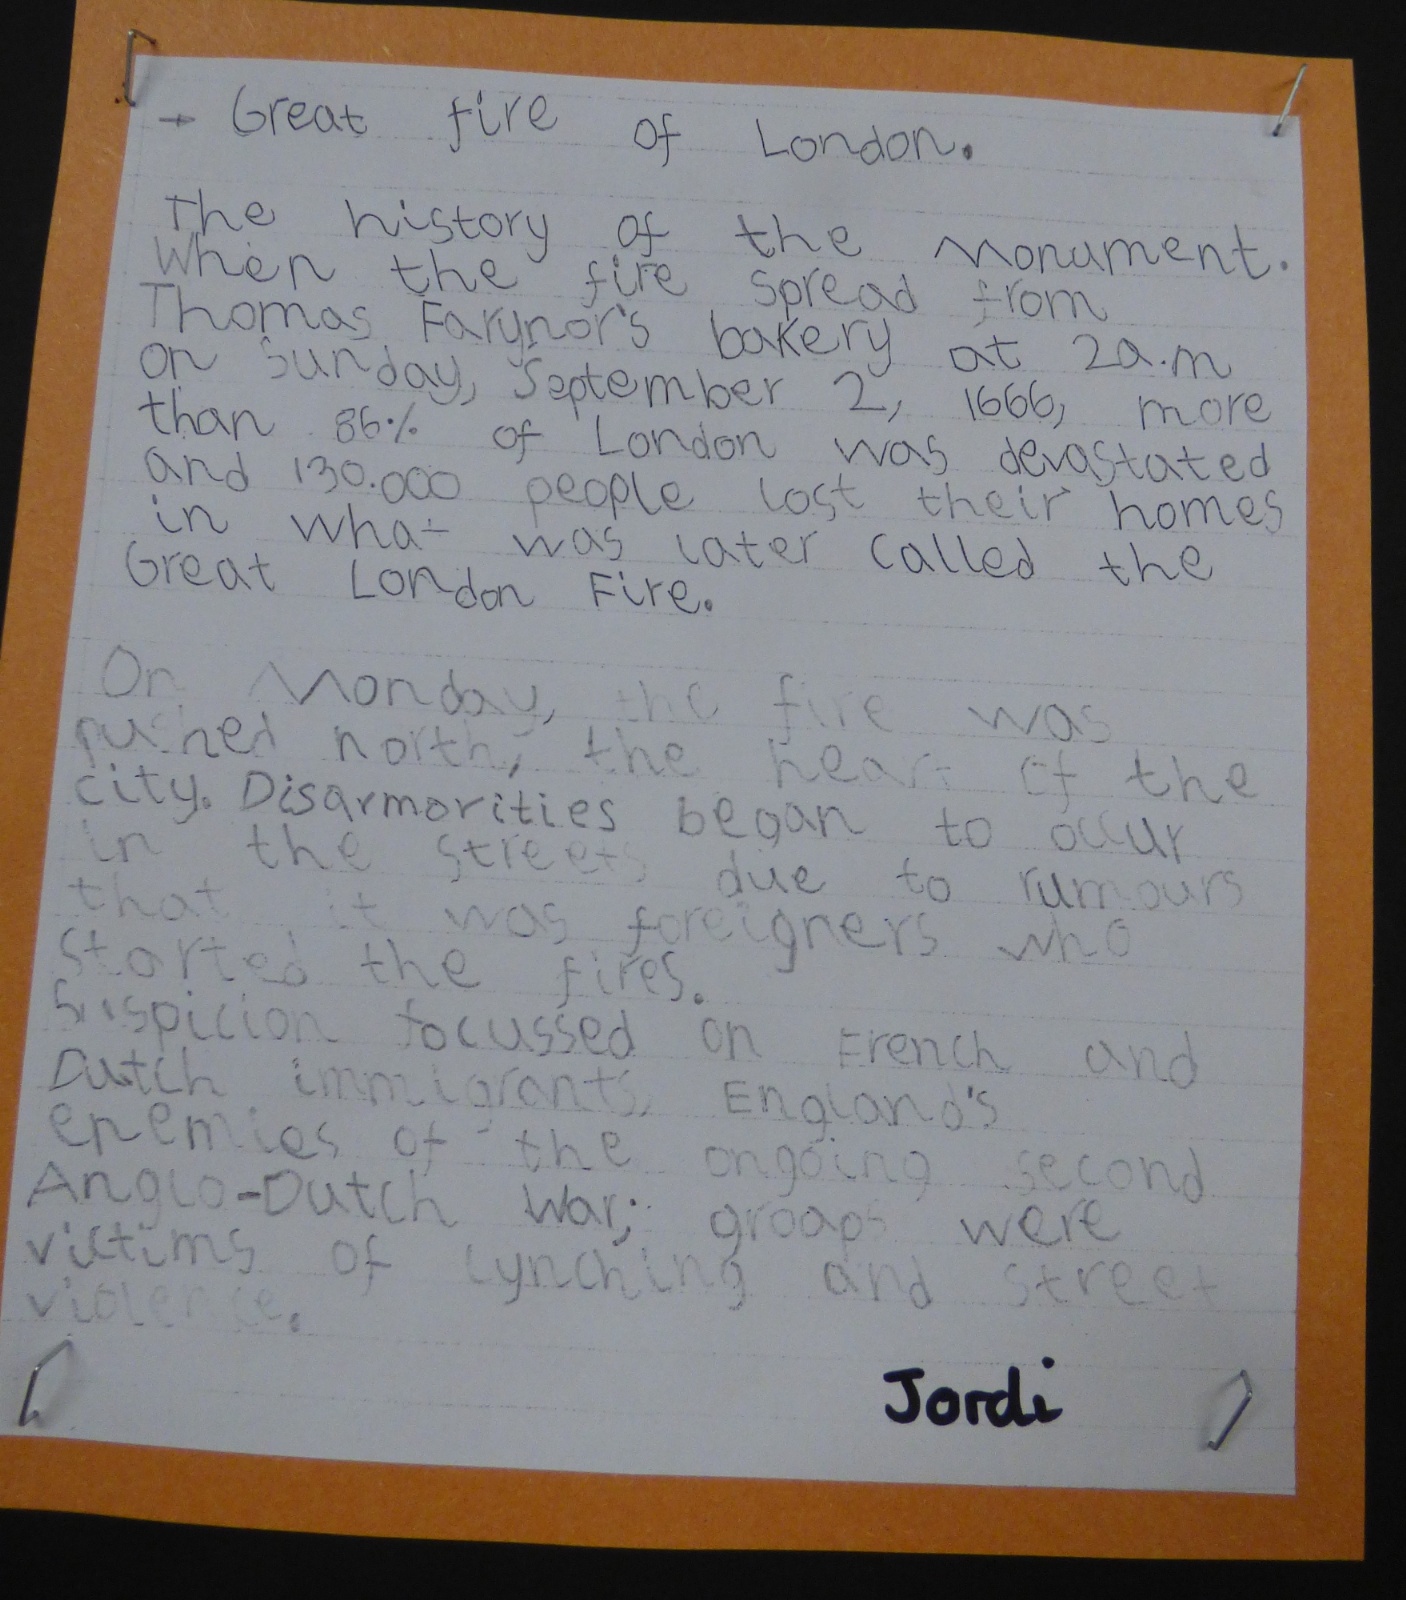 → Great fire of London.
The history of the Monument.
When the fire spread from
Thomas Farynor's bakery at 2a.m
on Sunday, September 2, 1666, more
than 86% of London was devastated
and 130.000 people lost their homes
in what was later called the
Great London Fire.
On Monday, the fire was
pushed north, the heart of the
city. Disarmorities began to occur
in the streets due to rumours
that it was foreigners who
started the fires.
Suspicion focussed on French and
Dutch immigrants, England's
enemies of the ongoing second
Anglo-Dutch War; groaps were
victims of lynching and street
violence.
Jordi